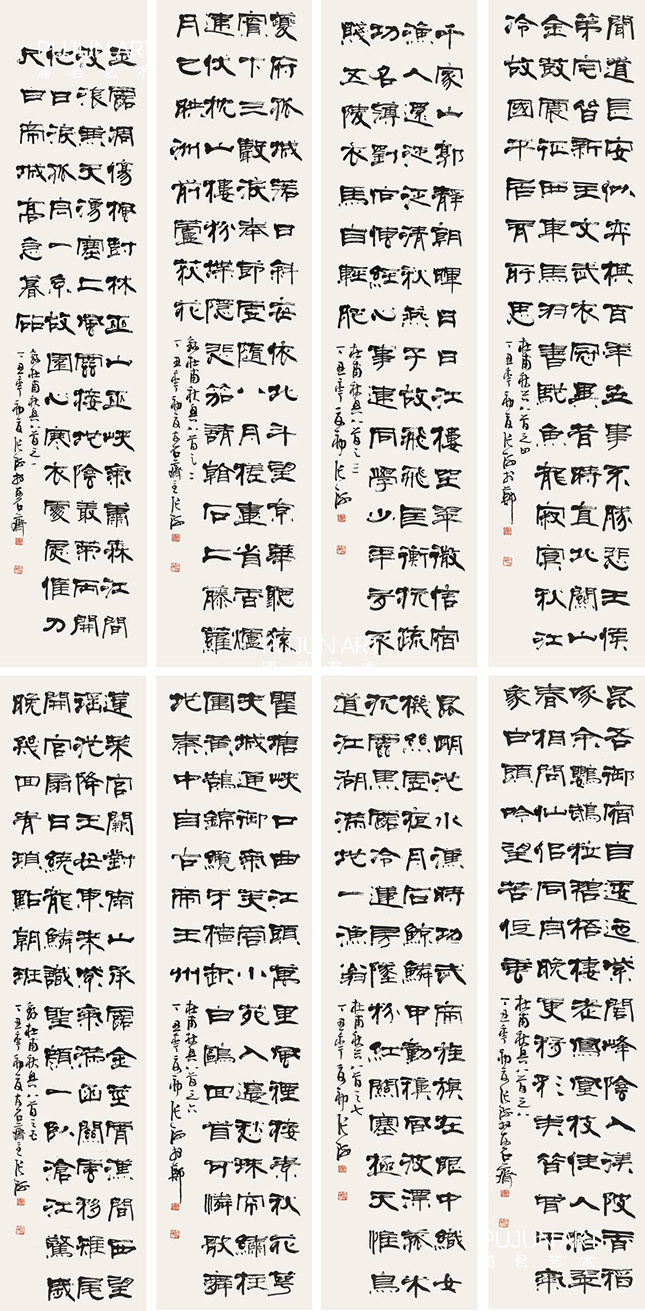 玉露凋傷楓樹林巫山巫峽氣蕭森江間
波浪兼天湧塞上風雲接地陰叢菊兩開
他日淚孤舟一系故園心寒衣處處催刀
尺白帝城高急暮砧
錄杜甫秋興八首之一
丁丑年初夏張海於友石齋
夔府孤城落日斜每依北斗望京華聽猿
實下三聲淚奉使虛隨八月槎畫省香爐
違伏枕山樓粉堞隱悲笳請看石上藤蘿
月已映洲前蘆荻花
錄杜甫秋興八首之二
丁丑年初夏友石齋主張海
千家山郭靜朝暉日日江樓坐翠微信宿
漁人還泛泛清秋燕子故飛飛匡衡抗疏
功名薄劉向傳經心事違同學少年多不
賤五陵衣馬自輕肥
杜甫秋興八首之三
丁丑年夏初張海
聞道長安似弈棋百年世事不勝悲王侯
第宅皆新主文武衣冠異昔時直北關山
金鼓震征西車馬羽書馳魚龍寂寞秋江
冷故國平居有所思
杜甫秋興八首之四
丁丑年初夏張海於鄭
蓬萊宮闕對南山承露金莖霄漢間西望
瑤池降王母東來紫氣滿函關雲移雉尾
開宮扇日繞龍鱗識聖顏一臥滄江驚歲
晚幾回青瑣點朝班
錄杜甫秋興八首之五
丁丑年初夏友石齋主張海
瞿塘峽口曲江頭萬里風煙接素秋花萼
夾城通御氣芙蓉小苑入邊愁珠簾繡柱
圍黃鵠錦纜牙檣起白鷗回首可憐歌舞
地秦中自古帝王州
杜甫秋興八首之六
丁丑年夏初張海於鄭
昆明池水漢時功武帝旌旗在眼中織女
機絲虛夜月石鯨鱗甲動秋風波漂菰米
沉雲黑露冷蓮房墜粉紅關塞極天惟鳥
道江湖滿地一漁翁
杜甫秋興八首之七
丁丑年夏初張海
昆吾御宿自逶迤紫閣峰陰入渼陂香稻
啄余鸚鵡粒碧梧棲老鳳凰枝佳人拾翠
春相問仙侶同舟晚更移彩筆昔曾干氣
象白頭吟望苦低垂
杜甫秋興八首之八
丁丑年初夏張海於友石齋
PUJUN ART